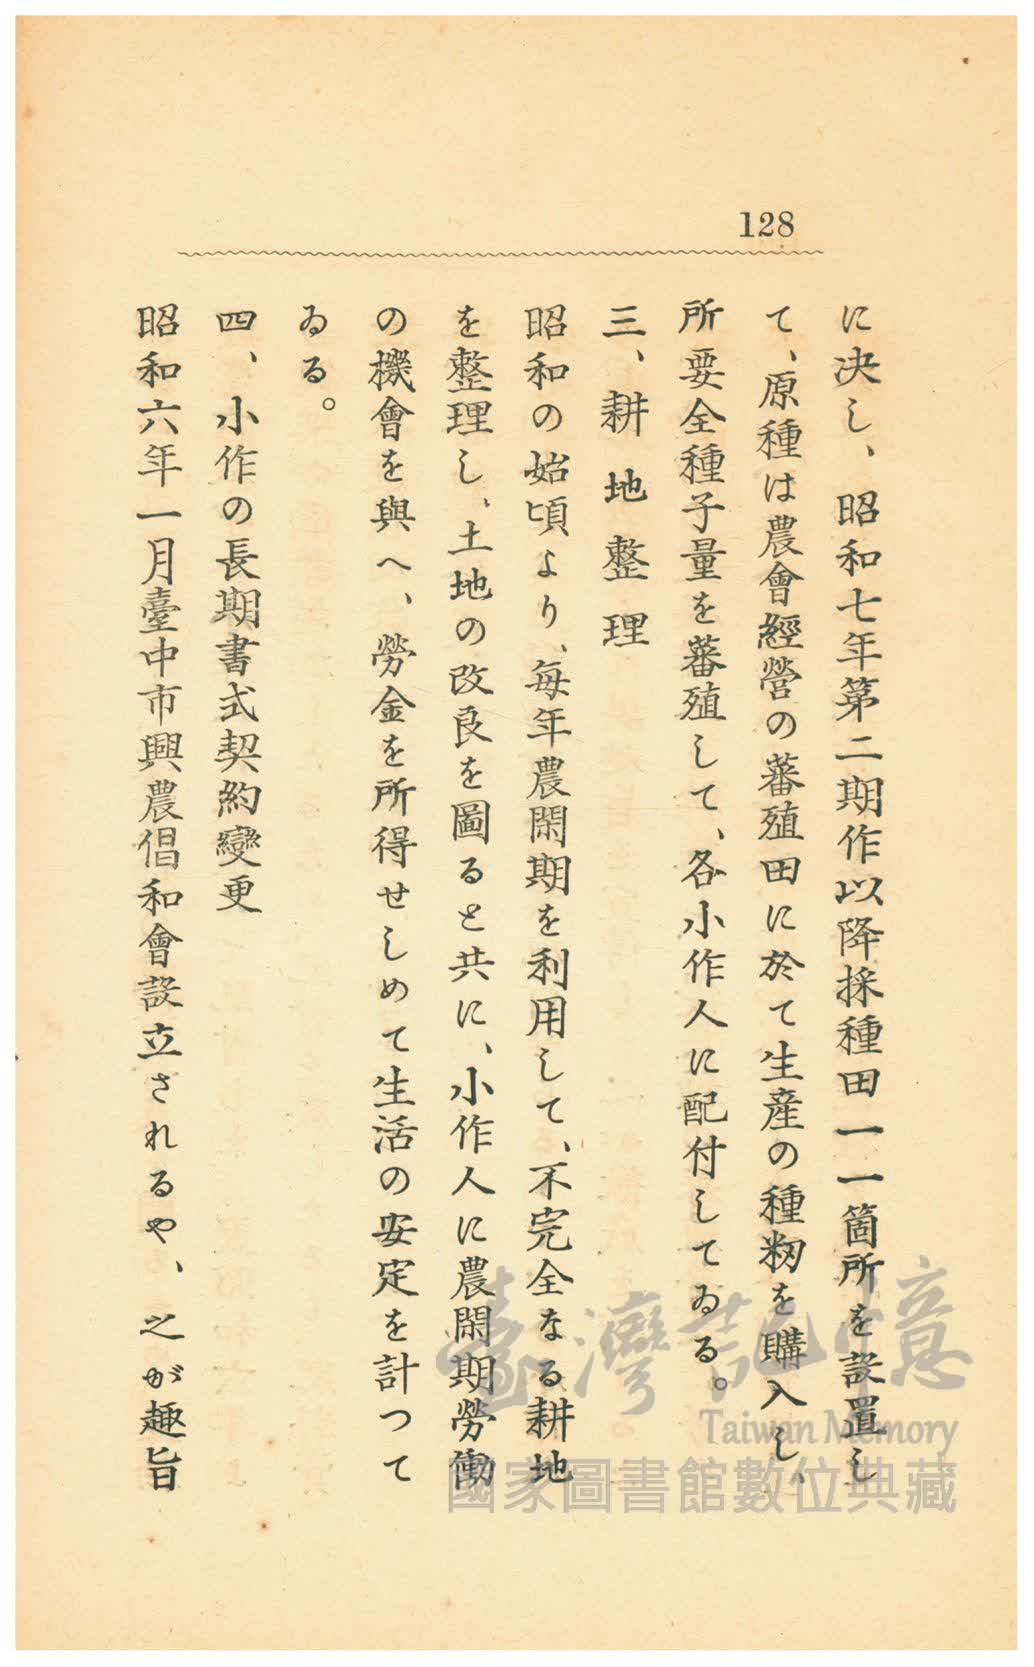 128
に决し、昭和七年第二期作以降採種田一一箇所を設置し
て、原種は農會經營の蕃殖田に於て生産の種籾を購入し、
所要全種子量を蕃殖して、各小作人に配付してゐる。
三、耕地整理
昭和の始頃より、毎年農閑期を利用して、不完全なる耕地
を整理し、土地の改良を圖ると共に、小作人に農閑期勞働
の機會を與へ、勞金を所得せしめて生活の安定を計つて
ゐる。
四、小作の長期書式契約變更
昭和六年一月臺中市興農倡和會設立されるや、之が趣旨
臺灣記憶
Taiwan Memory
國家圖書館數位典藏